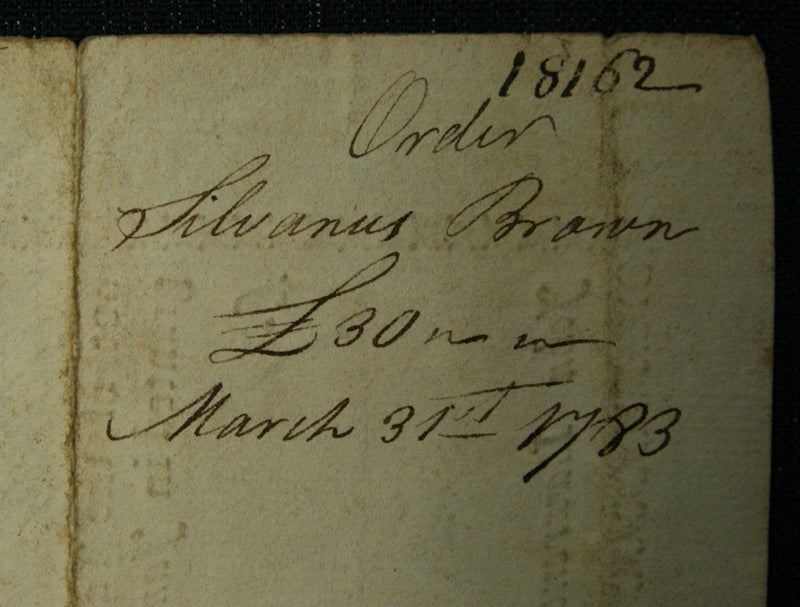 18162
Order
Silvanus Brown
£30 " - " -
March 31st 1783